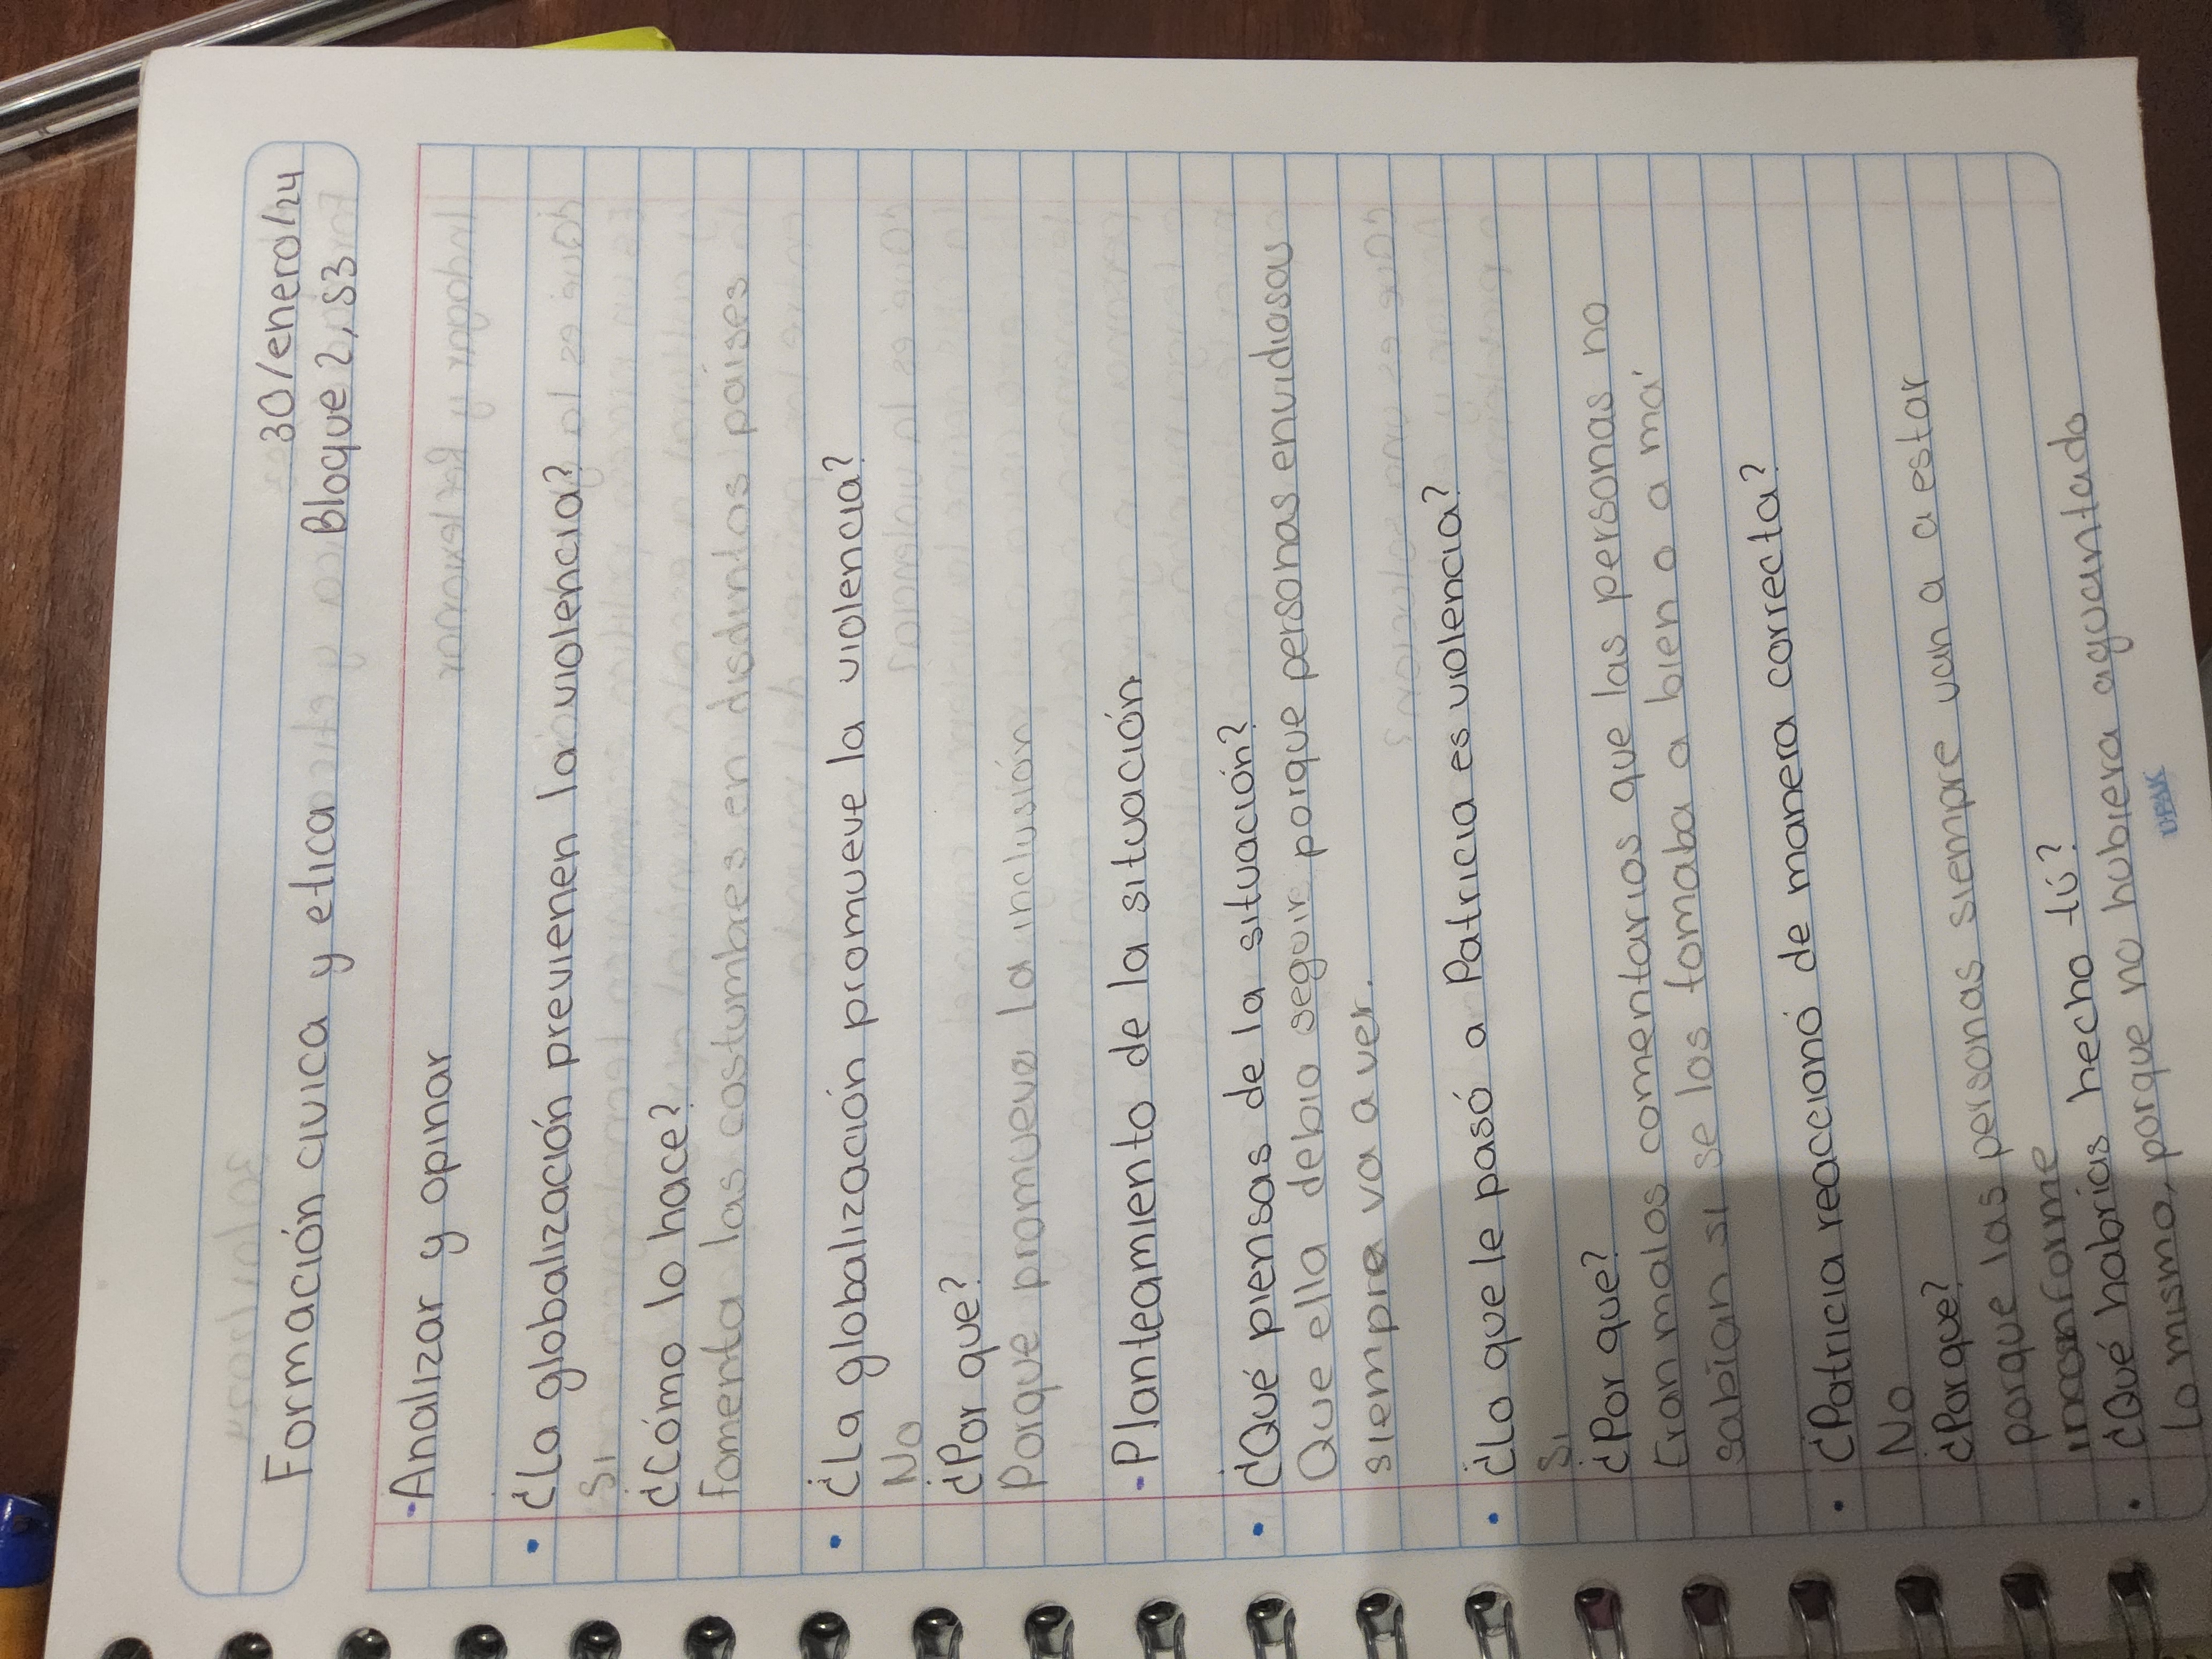 30/enero/24
Formación civica y etica Bloque 2, S3
·Analizar y opinar
• ¿La globalización previenen la violencia?
Si
¿Cómo lo hace?
Fomenta las costumbres en distintos países
• ¿La globalización promueve la violencia?
No
¿Por que?
Porque promueve la inclusión
·Planteamiento de la situación
• ¿Qué piensas de la situación?
Que ella debio seguir porque personas envidiosas
siempre va a ver.
• ¿Lo que le pasó a Patricia es violencia?
Si
¿Por que?
Eran malos comentarios que las personas no
sabian si se los tomaba a bien o a mal
• ¿Patricia reaccionó de manera correcta?
No
¿Porque?
porque las personas siempre van a a estar
inconforme
• ¿Qué habrías hecho tú?
Lo mismo, porque no hubiera aguantado